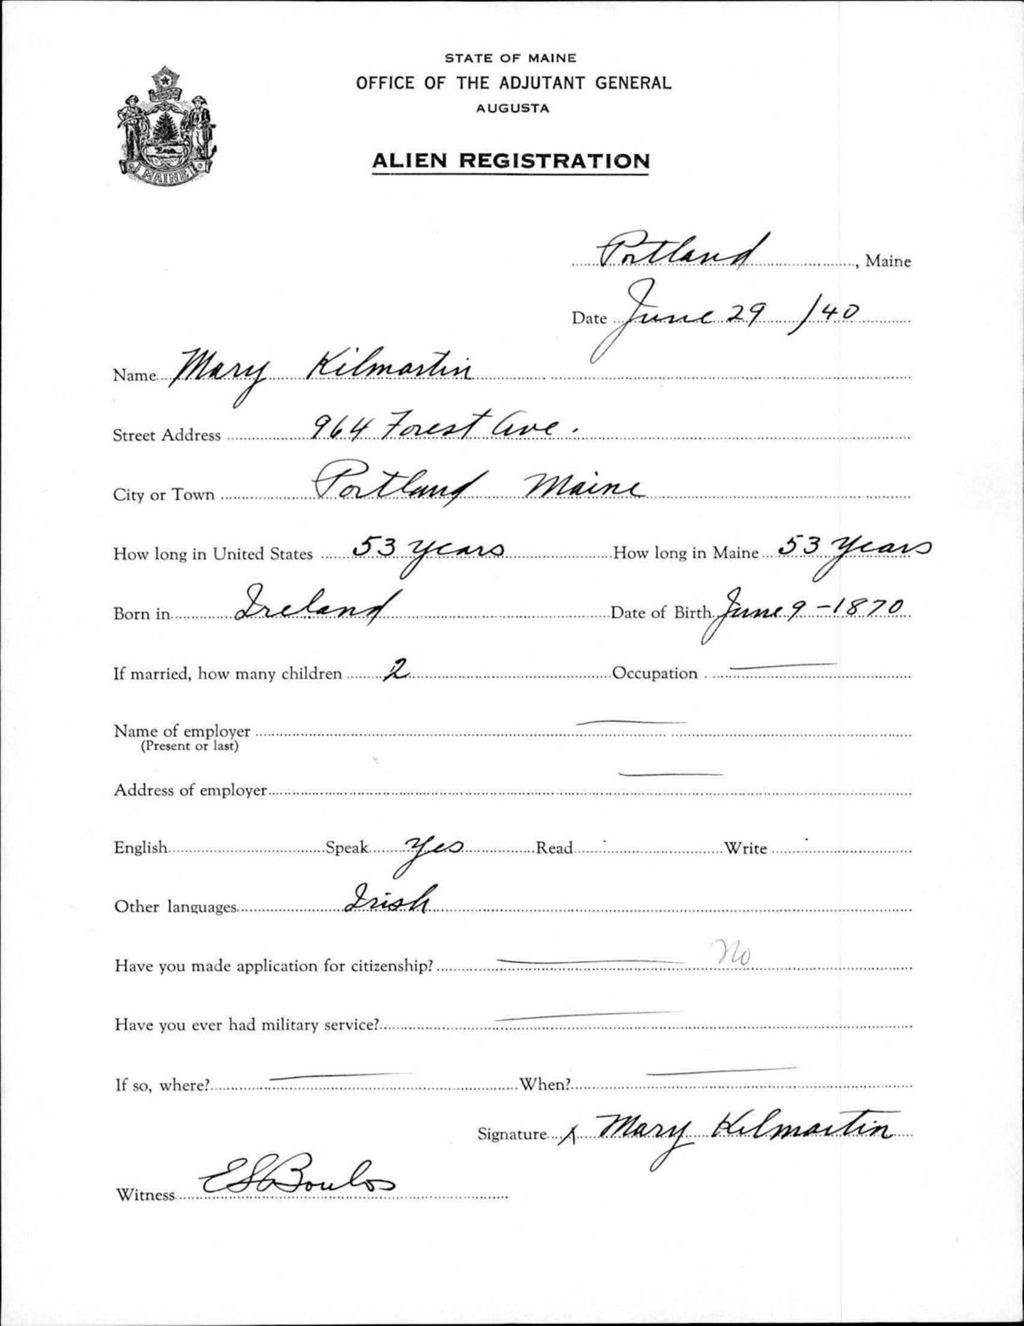 STATE OF MAINE
OFFICE OF THE ADJUTANT GENERAL
AUGUSTA
ALIEN REGISTRATION
Portland, Maine
Date June 29 /40
Name Mary Kilmartin
Street Address 964 Forest Ave.
City or Town Portland Maine
How long in United States 53 years How long in Maine 53 years
Born in Ireland Date of Birth June 9-1870
If married, how many children 2 Occupation
Name of employer
(Present or last)
Address of employer
English Speak Yes Read Write
Other languages Irish
Have you made application for citizenship? No
Have you ever had military service?
If so, where? When?
Signature X Mary Kilmartin
Witness E S Boulos
MAINE